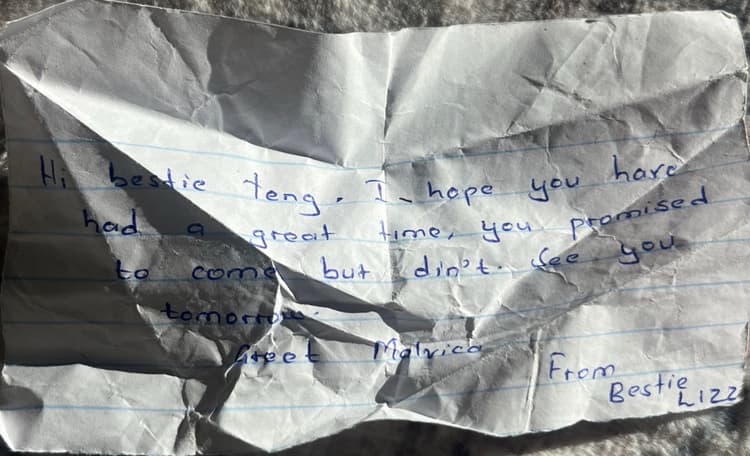 Hi bestie Teng. I hope you have
had a great time, you promised
to come but din't. See you
tomorrow.
Greet Malvica
From
Bestie Lizz